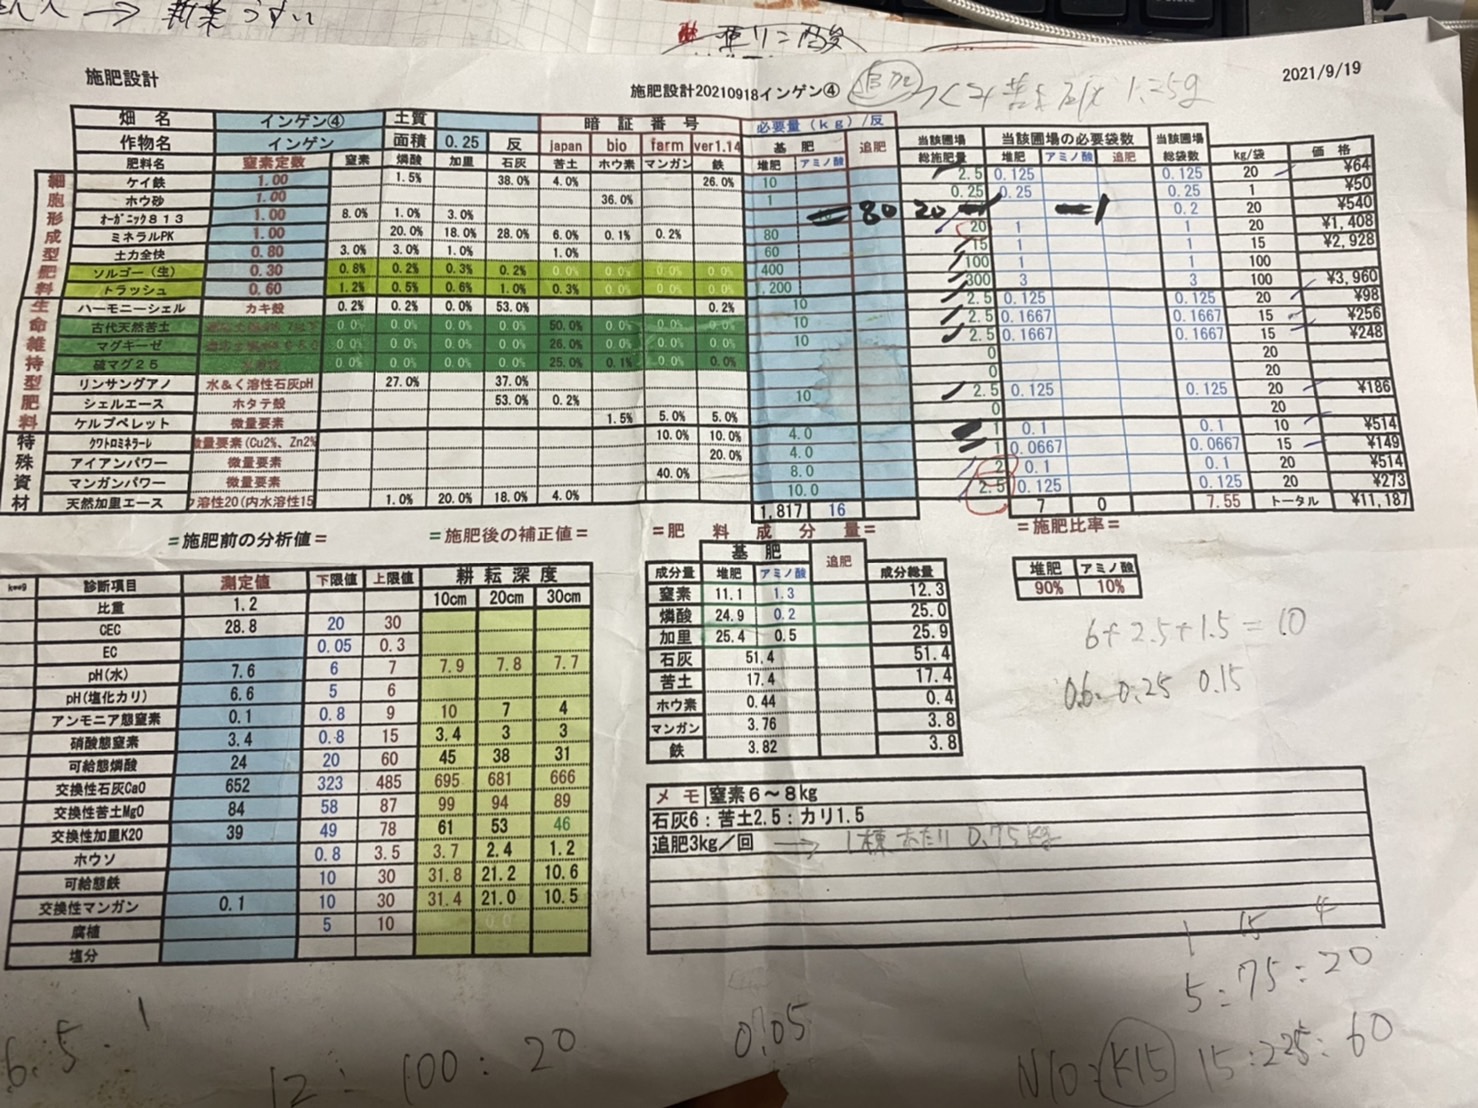 新葉うすい
亜リン酸
施肥設計
2021/9/19
施肥設計20210918インゲン④
1.25g
畑 名 インゲン④ 土質 暗 証 番 号 必要量(kg)/反
作物名 インゲン 面積 0.25 反 japan bio farm ver1.14 基 肥 追肥 当該圃場 総施肥量 当該圃場の必要袋数 当該圃場 総袋数 kg/袋 価 格
肥料名 窒素定数 窒素 燐酸 加里 石灰 苦土 ホウ素 マンガン 鉄 堆肥 アミノ酸 堆肥 アミノ酸 追肥
細胞形成型肥料
ケイ鉄 1.00 1.5% 38.0% 4.0% 26.0% 10 2.5 0.125 0.125 20 ¥64
ホウ砂 1.00 36.0% 1 0.25 0.25 0.25 1 ¥50
オーガニック813 1.00 8.0% 1.0% 3.0% 80 20 1 0.2 20 ¥540
ミネラルPK 1.00 20.0% 18.0% 28.0% 6.0% 0.1% 0.2% 80 20 1 1 20 ¥1,408
土力全快 0.80 3.0% 3.0% 1.0% 1.0% 60 15 1 1 15 ¥2,928
ソルゴー(生) 0.30 0.8% 0.2% 0.3% 0.2% 0.0% 0.0% 0.0% 0.0% 400 100 1 1 100
トラッシュ 0.60 1.2% 0.5% 0.6% 1.0% 0.3% 0.0% 0.0% 0.0% 1,200 300 3 3 100 ¥3,960
生命維持型肥料
ハーモニーシェル カキ殻 0.2% 0.2% 0.0% 53.0% 0.2% 10 2.5 0.125 0.125 20 ¥98
古代天然苦土 0.0% 0.0% 0.0% 0.0% 50.0% 0.0% 0.0% 0.0% 10 2.5 0.1667 0.1667 15 ¥256
マグキーゼ 0.0% 0.0% 0.0% 0.0% 26.0% 0.0% 0.0% 0.0% 10 2.5 0.1667 0.1667 15 ¥248
硫マグ25 0.0% 0.0% 0.0% 0.0% 25.0% 0.1% 0.0% 0.0% 0 20
リンサングアノ 水&く溶性石灰pH 27.0% 37.0% 0 20
シェルエース ホタテ殻 53.0% 0.2% 10 2.5 0.125 0.125 20 ¥186
ケルプペレット 微量要素 1.5% 5.0% 5.0% 0 20
特殊資材
クワトロミネラーレ 微量要素(Cu2%、Zn2% 10.0% 10.0% 4.0 1 0.1 0.1 10 ¥514
アイアンパワー 微量要素 20.0% 4.0 1 0.0667 0.0667 15 ¥149
マンガンパワー 微量要素 40.0% 8.0 2 0.1 0.1 20 ¥514
天然加里エース ク溶性20(内水溶性15 1.0% 20.0% 18.0% 4.0% 10.0 2.5 0.125 0.125 20 ¥273
1,817 16 7 0 7.55 トータル ¥11,187
=施肥前の分析値= =施肥後の補正値= =肥 料 成 分 量= =施肥比率=
診断項目 測定値 下限値 上限値 耕 耘 深 度
10cm 20cm 30cm
比重 1.2
CEC 28.8 20 30
EC 0.05 0.3
pH(水) 7.6 6 7 7.9 7.8 7.7
pH(塩化カリ) 6.6 5 6
アンモニア態窒素 0.1 0.8 9 10 7 4
硝酸態窒素 3.4 0.8 15 3.4 3 3
可給態燐酸 24 20 60 45 38 31
交換性石灰CaO 652 323 485 695 681 666
交換性苦土MgO 84 58 87 99 94 89
交換性加里K2O 39 49 78 61 53 46
ホウソ 0.8 3.5 3.7 2.4 1.2
可給態鉄 10 30 31.8 21.2 10.6
交換性マンガン 0.1 10 30 31.4 21.0 10.5
腐植 5 10
塩分
基 肥 追肥
成分量 堆肥 アミノ酸 成分総量
窒素 11.1 1.3 12.3
燐酸 24.9 0.2 25.0
加里 25.4 0.5 25.9
石灰 51.4 51.4
苦土 17.4 17.4
ホウ素 0.44 0.4
マンガン 3.76 3.8
鉄 3.82 3.8
堆肥 アミノ酸
90% 10%
6+2.5+1.5=10
0.6: 0.25 0.15
メ モ 窒素6~8kg
石灰6:苦土2.5:カリ1.5
追肥3kg/回 → 1棟あたり 0.75kg
1 15 4
5:75:20
N10:K15 15:225:60
6.5.1
12:100:20
0.05